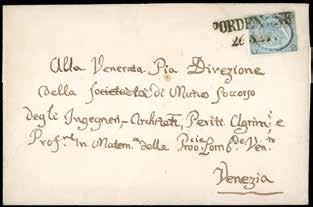 PORDENONE
26
Alla Venerata Pia Direzione
della Societa di Mutuo Soccorso
degli Ingegneri, Architetti, Periti Agrim.i e
Prof.ri in Matem.a delle Prov.cie Lomb.do Ven.to
Venezia